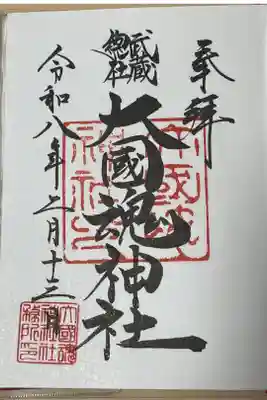 奉拝
武蔵
總社
大國魂神社
令和八年二月十三日
大國魂
神社
大國魂
神社社
務所印